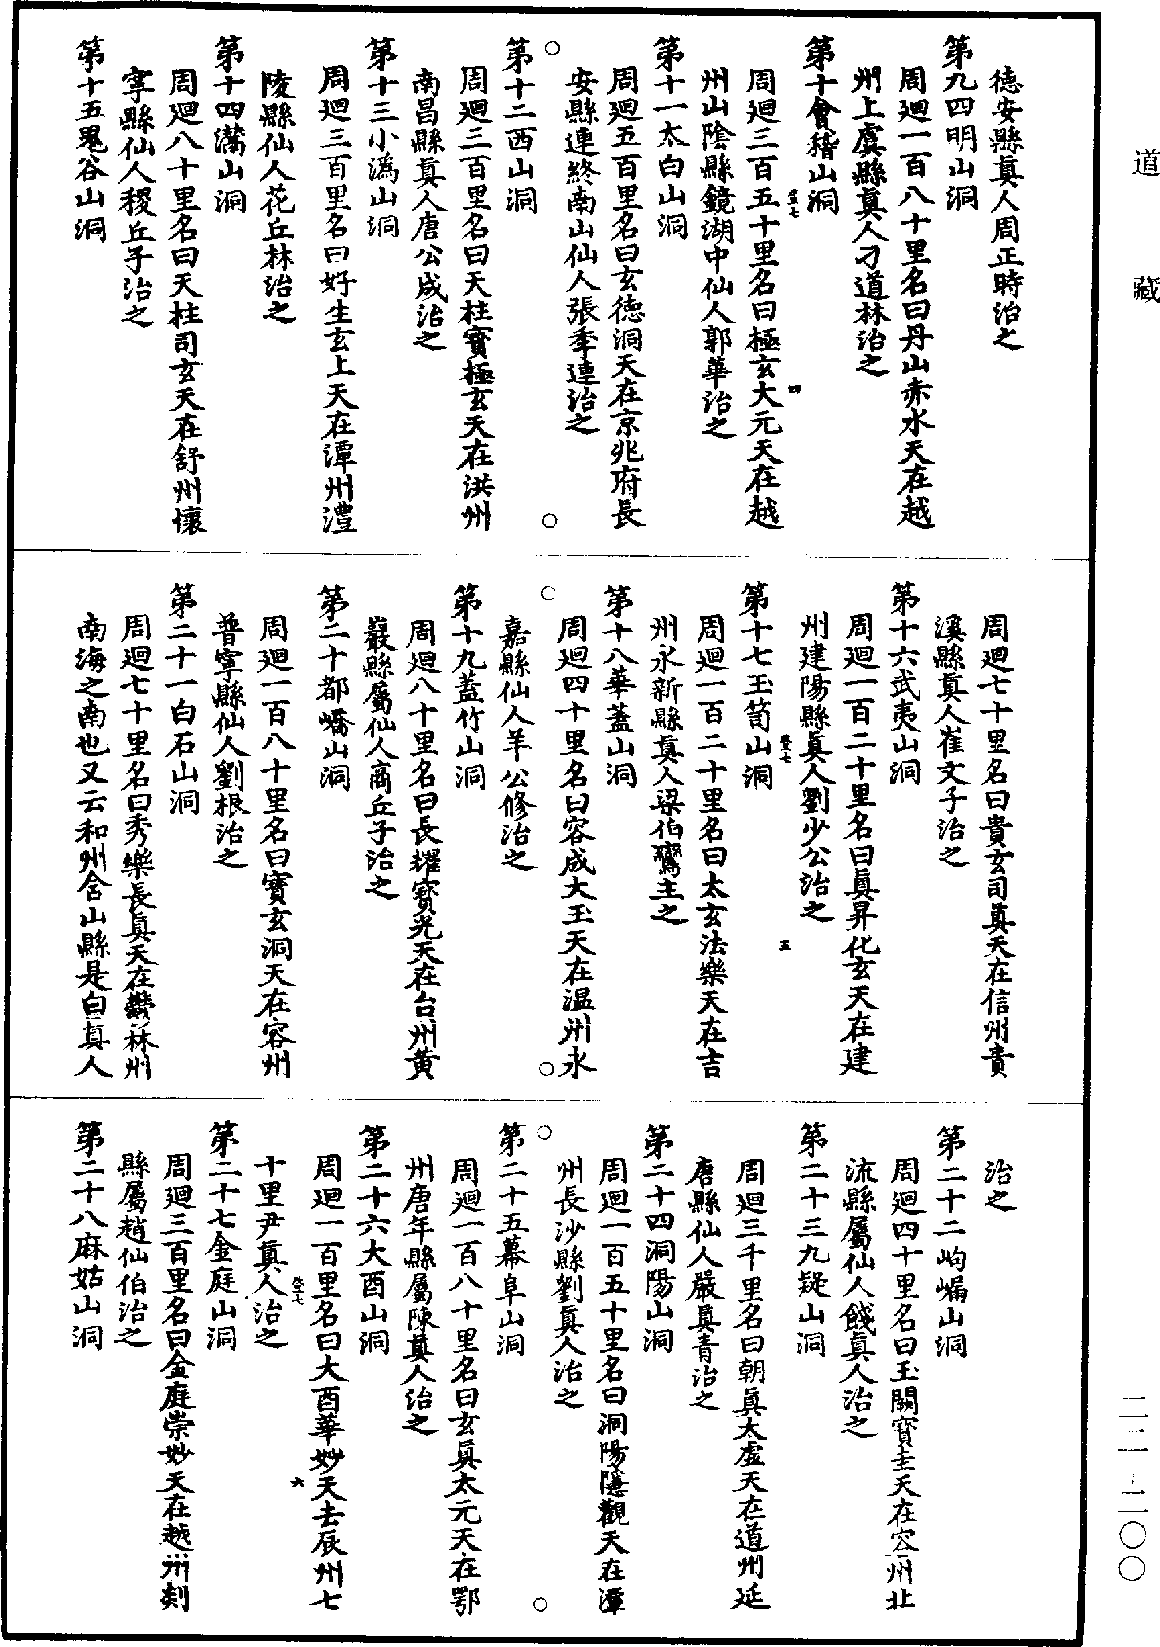 道藏
德安縣真人周正時治之
第九四明山洞
周廻一百八十里名曰丹山赤水天在越
州上虞縣真人刁道林治之
第十會稽山洞
周廻三百五十里名曰極玄大元天在越
州山陰縣鏡湖中仙人郭華治之
第十一太白山洞
周廻五百里名曰玄德洞天在京兆府長
安縣連終南山仙人張季連治之
第十二西山洞
周廻三百里名曰天柱寶極玄天在洪州
南昌縣真人唐公成治之
第十三小溈山洞
周廻三百里名曰好生玄上天在潭州澧
陵縣仙人花丘林治之
第十四灊山洞
周廻八十里名曰天柱司玄天在舒州懷
寧縣仙人稷丘子治之
第十五鬼谷山洞
周廻七十里名曰貴玄司真天在信州貴
溪縣真人崔文子治之
第十六武夷山洞
周廻一百二十里名曰真昇化玄天在建
州建陽縣真人劉少公治之
第十七玉笥山洞
周廻一百二十里名曰太玄法樂天在吉
州永新縣真人梁伯鸞主之
第十八華蓋山洞
周廻四十里名曰容成大玉天在温州永
嘉縣仙人羊公修治之
第十九蓋竹山洞
周廻八十里名曰長耀寶光天在台州黄
巖縣屬仙人商丘子治之
第二十都嶠山洞
周廻一百八十里名曰寶玄洞天在容州
普寧縣仙人劉根治之
第二十一白石山洞
周廻七十里名曰秀樂長真天在鬱林州
南海之南也又云和州含山縣是白真人
治之
第二十二岣嶁山洞
周廻四十里名曰玉闕寶圭天在容州北
流縣屬仙人餞真人治之
第二十三九疑山洞
周廻三千里名曰朝真太虚天在道州延
唐縣仙人嚴真青治之
第二十四洞陽山洞
周廻一百五十里名曰洞陽隱觀天在潭
州長沙縣劉真人治之
第二十五幕阜山洞
周廻一百八十里名曰玄真太元天在鄂
州唐年縣屬陳真人治之
第二十六大酉山洞
周廻一百里名曰大酉華妙天去辰州七
十里尹真人治之
第二十七金庭山洞
周廻三百里名曰金庭崇妙天在越州剡
縣屬趙仙伯治之
第二十八麻姑山洞
二二-二〇〇